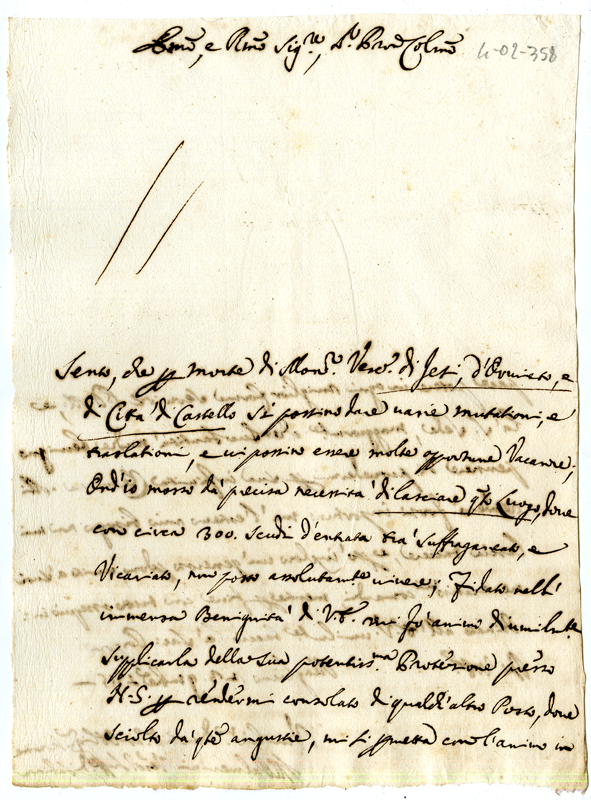 Emo, e Rmo Sig.re, Sr. Pron Colmo
4-02-358
Sento, che p morte di Mon.r Vesc.o di Jesi, d'Orvieto, e
di Cità di Castello si possino dare varie mutationi, e
traslationi, e vi possino essere molte opportune Vacanze;
Ond'io mosso dà precisa necessità di lasciare qto Luogo, dove
con circa 300. scudi d'entrata trà suffraganeato, e
Vicariato, non posso assolutamte vivere; Fidato nell'
immensa Benignità di V.E. mi fò animo di umilmte
supplicarla della sua potentiss.ma Protezione presso
N.S. p rendermi consolato di qualch'altro Posto, dove
sciolto dà qte angustie, mi si pmetta con l'animo in